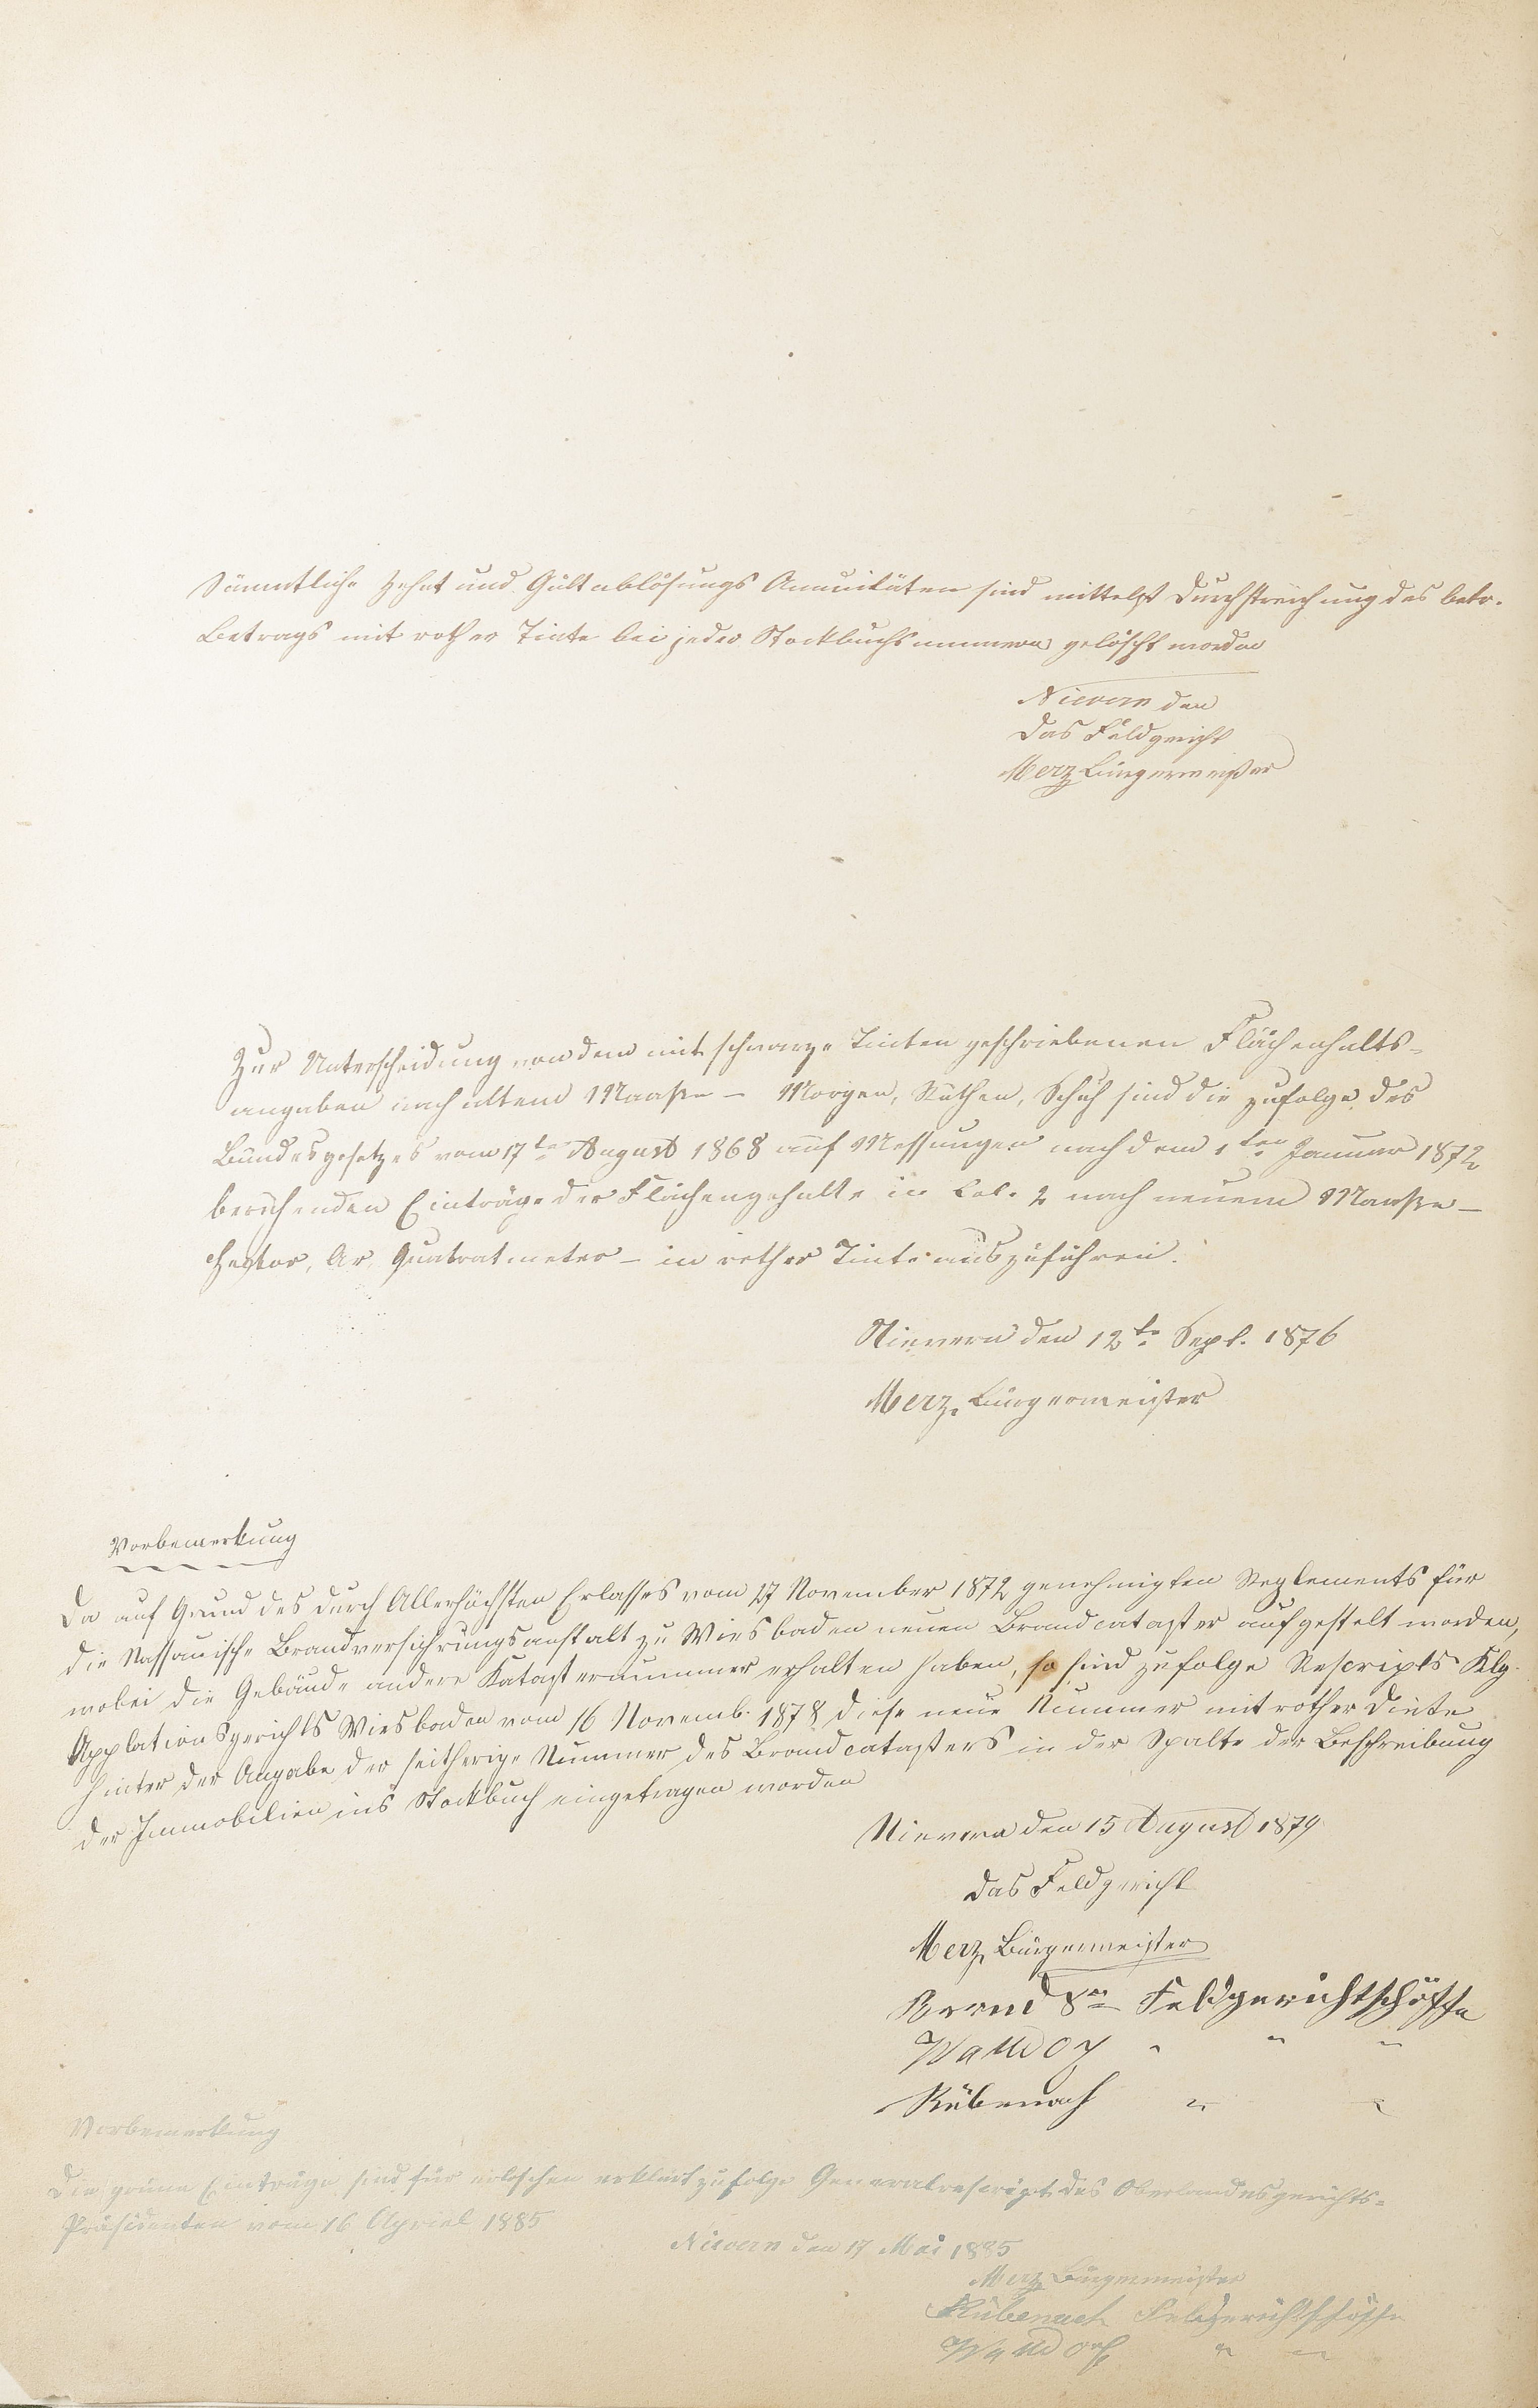 Sämmtliche Zehnt und Gültablösungs Annuitäten sind mittelst Durchstreichung des betr.
Betrags mit rother Tinte bei jeder Stockbuchsnummer gelöscht worden
Nievern den
Das Feldgericht
Merz Bürgermeister
Zur Unterscheidung von den mit schwarze Tinten geschriebenen Flächenhalts-
angaben nach altem Maaße – Morgen, Ruthen, Schuh sind die zufolge des
Bundesgesetzes vom 17ten August 1868 auf Messungen nach dem 1ten Januar 1872
beruhenden Einträge der Flächengehalte in Col. 2 nach neuem Maaße –
Hectar, Ar, Quatratmeter – in rother Tinte auszuführen.
Nievern den 12ten Sept. 1876
Merz, Bürgermeister
Vorbemerkung
Da auf Grund des durch Allerhöchsten Erlasses vom 27 November 1872 genehmigten Reglements für
die Nassauische Brandversichrungsanstalt zu Wiesbaden neuen Brandcataster aufgestelt worden,
wobei die Gebäude andere Katasternummer erhalten haben, so sind zufolge Rescripts Klg.
Applationsgerichts Wiesbaden vom 16 Novemb. 1878 diese neue Nummer mit rother Dinte
hinter der Angabe der seitherige Nummer des Brandcatasters in der Spalte der Beschreibung
der Immobilien ins Stockbuch eingetragen worden
Nievern den 15 August 1879
Das Feldgericht
Merz Bürgermeister
Feldgerichtschöffe
" " "
Rübenach " "
Vorbemerkung
Die grüne Einträge sind für erloschen erklärt zufolge Generalrescript des Oberlandesgerichts-
Präsidenten vom 16 Apriel 1885
Nievern den 17 Mai 1885
Merz Bürgermeister
Rübenach Feldgerichtschöffe
" "